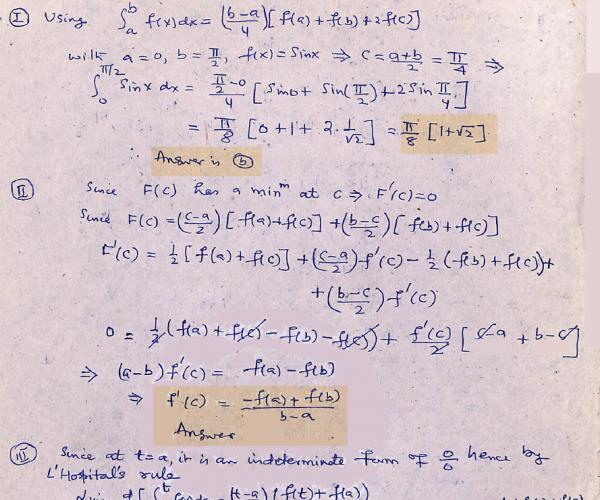 I Using ∫_a^b f(x)dx = (b-a)/4 [f(a) + f(b) + 2f(c)]
with a = 0, b = π/2, f(x) = Sinx ⇒ c = (a+b)/2 = π/4 ⇒
∫_0^{π/2} Sinx dx = (π/2 - 0)/4 [Sin0 + Sin(π/2) + 2 Sin π/4]
= π/8 [0 + 1 + 2 · 1/√2] = π/8 [1+√2]
∴ Answer is ⓑ
II Since F(c) has a min^m at c ⇒ F'(c) = 0
Since F(c) = ((c-a)/2) [f(a) + f(c)] + ((b-c)/2) [f(b) + f(c)]
F'(c) = 1/2 [f(a) + f(c)] + ((c-a)/2) f'(c) - 1/2 (f(b) + f(c)) +
+ ((b-c)/2) f'(c)
0 = 1/2 (f(a) + f(c) - f(b) - f(c)) + f'(c)/2 [c-a + b-c]
⇒ (a-b) f'(c) = f(a) - f(b)
⇒ f'(c) = (-f(a) + f(b))/(b-a)
Answer
III Since at t=a, it is an indeterminate form of 0/0 hence by
L'Hopital's rule